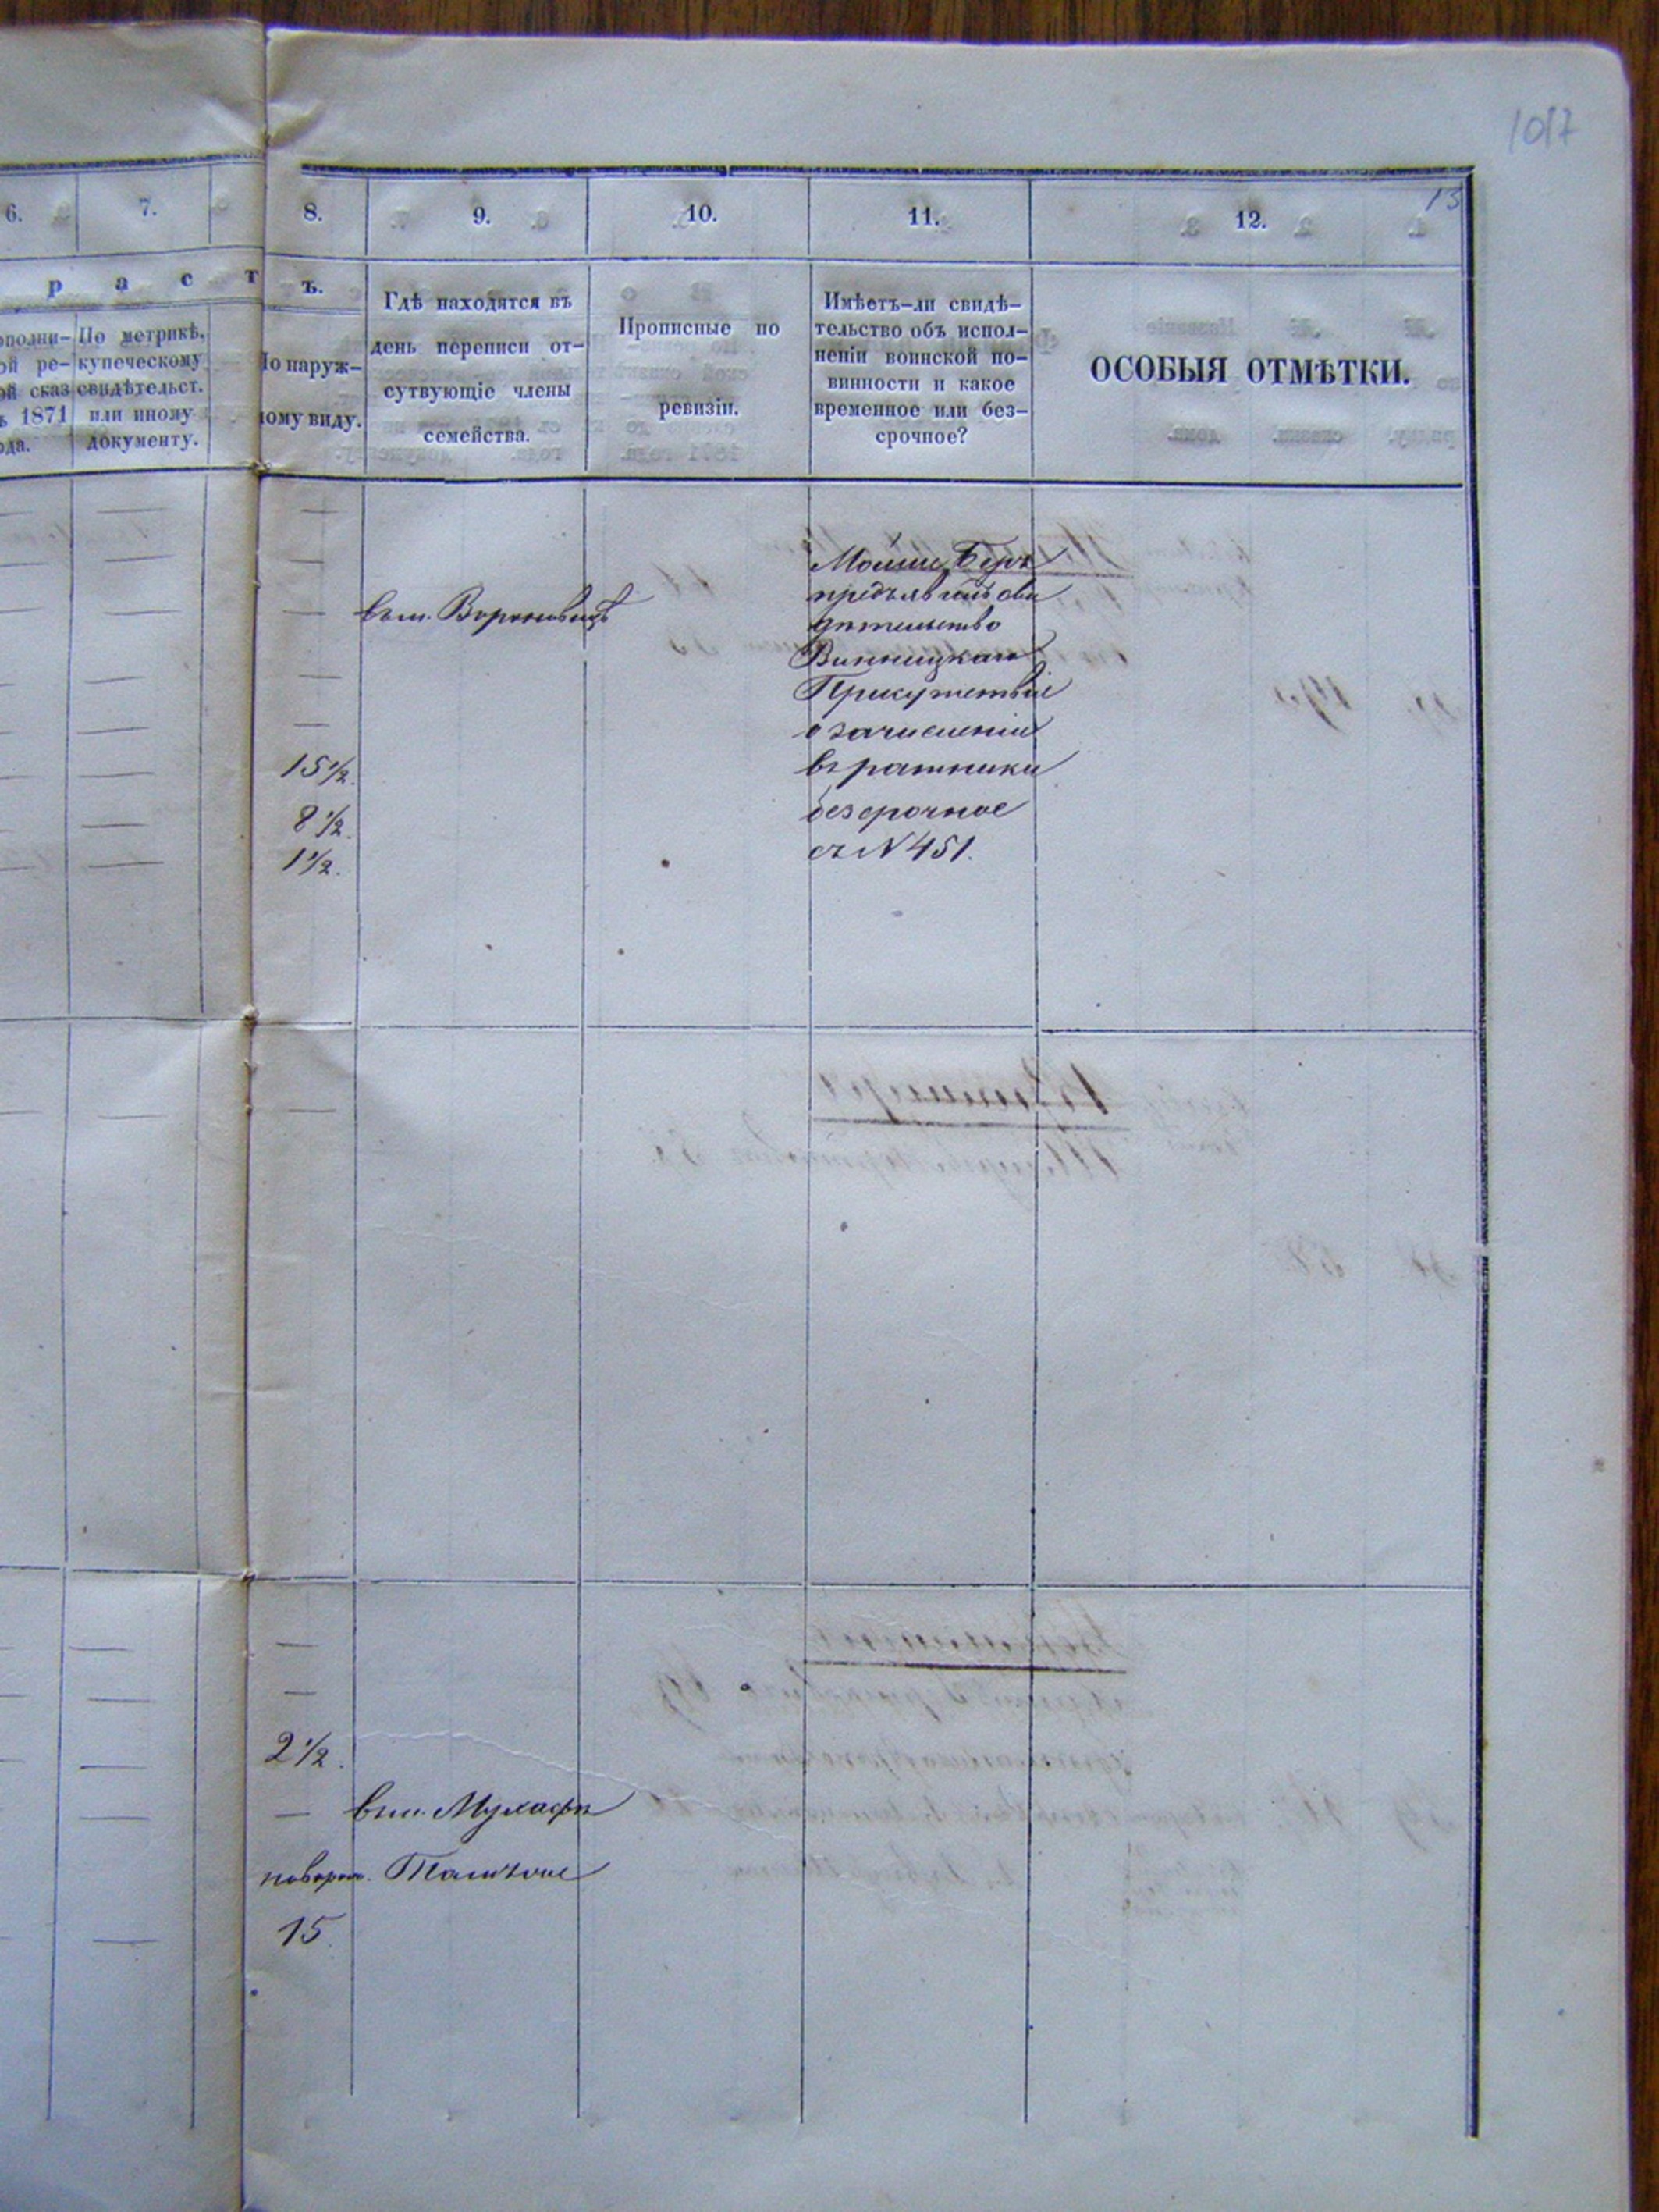 1017
13
6.
7.
8.
9.
10.
11.
12.
р а с т
ъ.
ополни-
ой ре-
ой сказ
ъ 1871
ода.
По метрикѣ,
купеческому
свидѣтельст.
или иному
документу.
По наруж-
ному виду.
Гдѣ находятся въ
день переписи от-
сутвующіе члены
семейства.
Прописные по
ревизіи.
Имѣетъ-ли свидѣ-
тельство объ испол-
неніи воинской по-
винности и какое
временное или без-
срочное?
ОСОБЫЯ ОТМѢТКИ.
Мошие Беръ
предъявилъ сви
дѣтельство
Винницкаго
Присутствіе
о зачисленіи
въ ратники
безсрочное
съ N 451.
въ м. Вороновицѣ
15 1/2.
8 1/2.
1 1/2.
2 1/2.
въ м. Мухафѣ
15